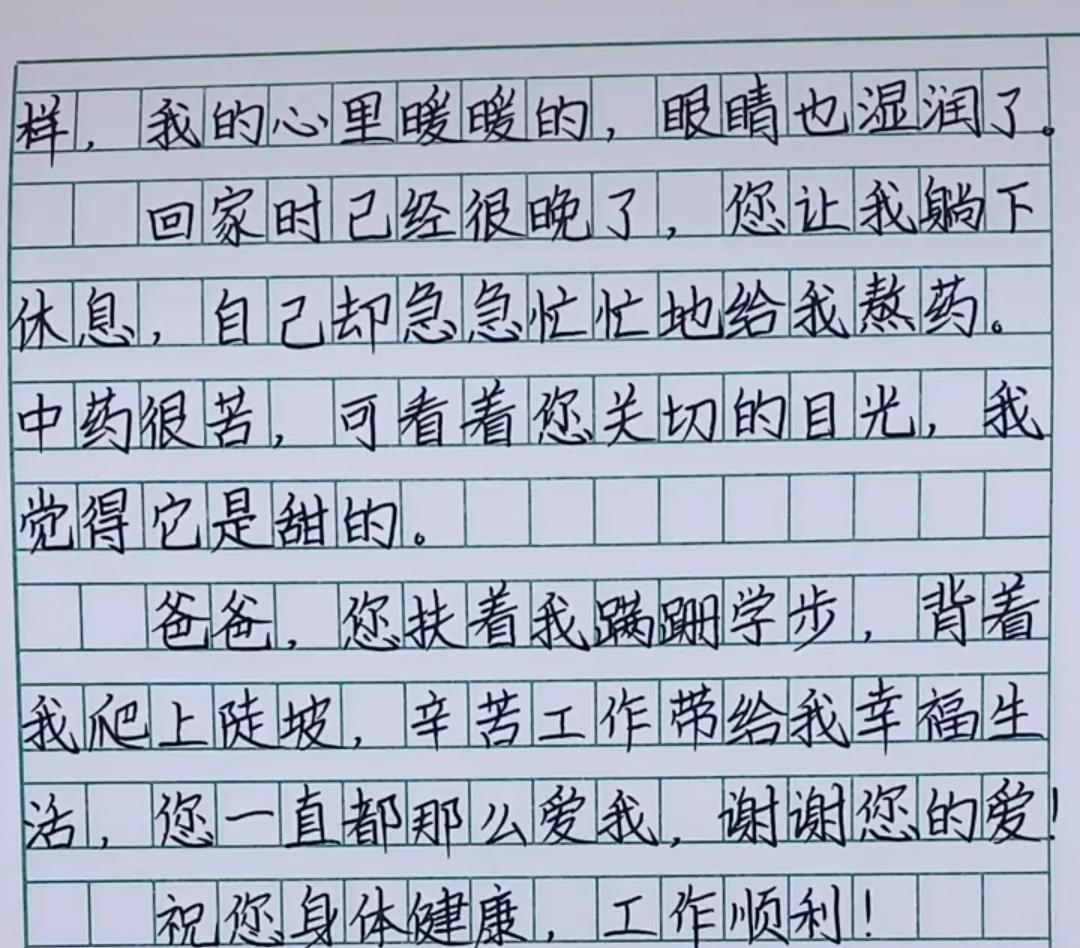 样，我的心里暖暖的，眼睛也湿润了。
回家时已经很晚了，您让我躺下
休息，自己却急急忙忙地给我熬药。
中药很苦，可看着您关切的目光，我
觉得它是甜的。
爸爸，您扶着我蹒跚学步，背着
我爬上陡坡，辛苦工作带给我幸福生
活，您一直都那么爱我，谢谢您的爱！
祝您身体健康，工作顺利！